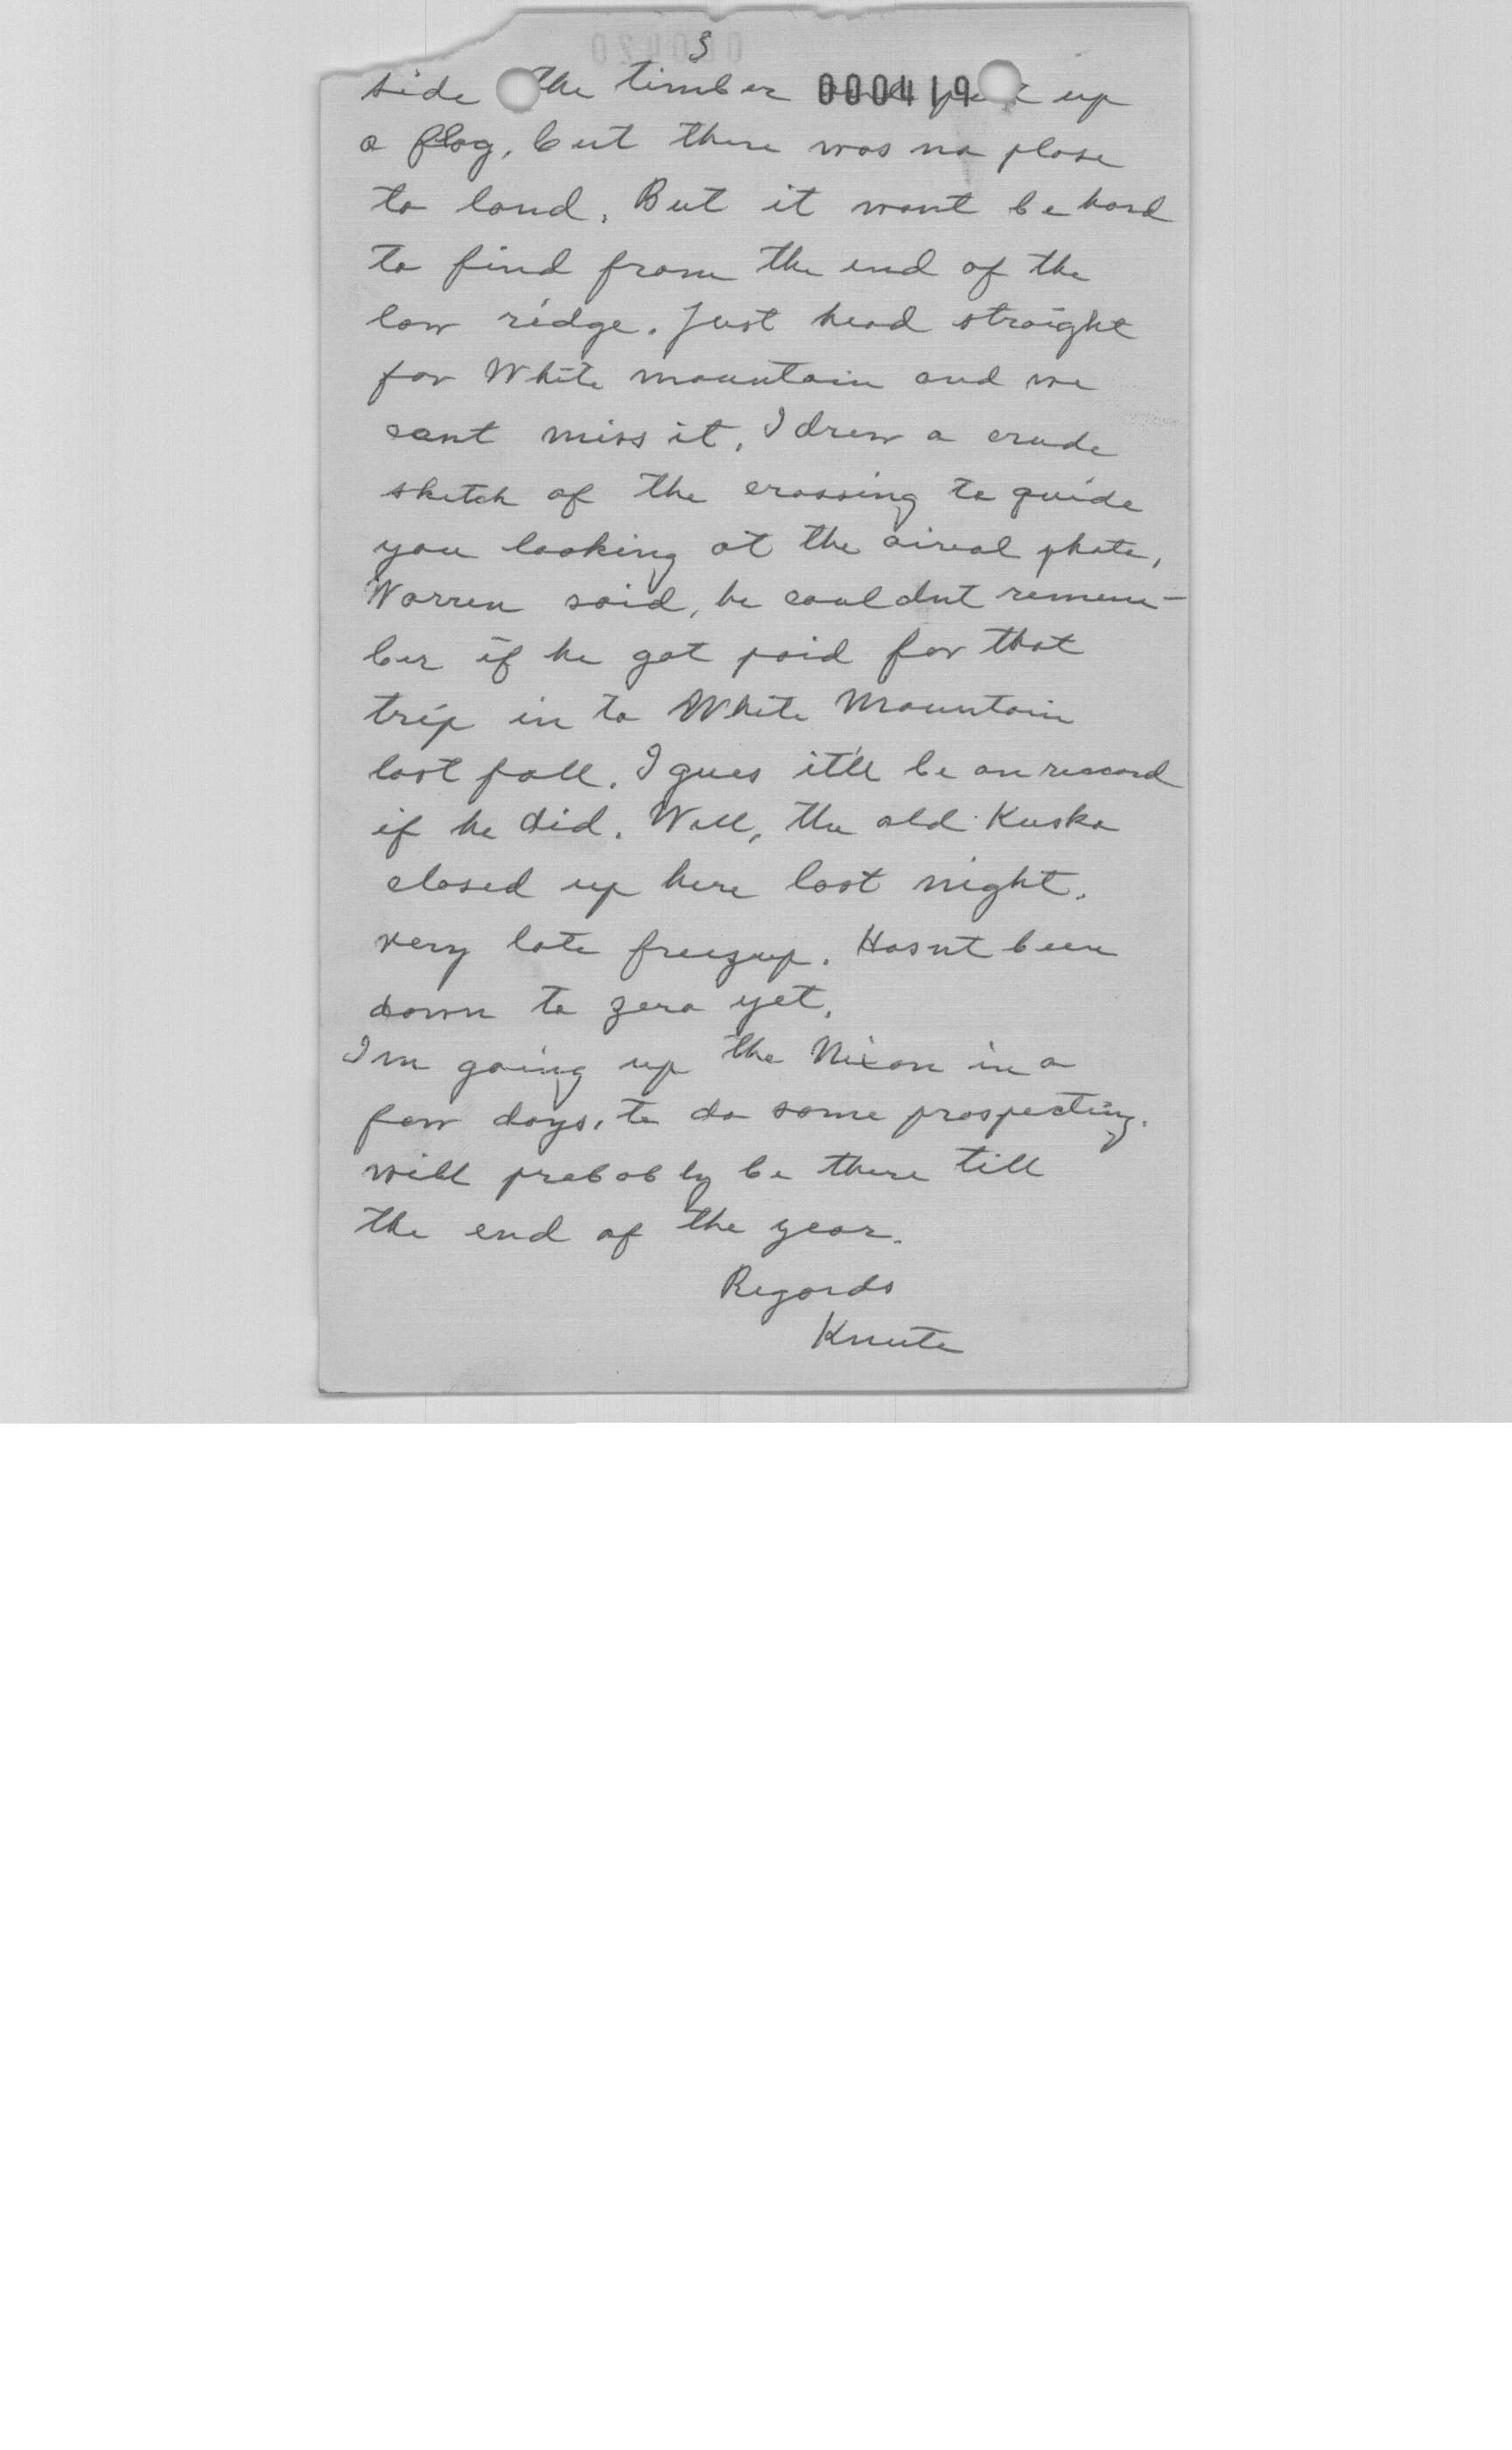 3
side the timber 000419 up
a flag, but there was no plase
to land. But it wont be hard
to find from the end of the
low ridge. Just head straight
for White mountain and we
cant miss it. I drew a crude
sketch of the crossing to guide
you looking at the aireal photo,
Warren said, he couldnt remem-
ber if he got paid for that
trip in to White Mountain
last fall. I gues it'll be on record
if he did. Well, the old Kusko
closed up here last night.
very late freezup. Hasnt been
down to zero yet.
Im going up the Nixon in a
few days, to do some prospecting.
will probably be there till
the end of the year.
Regards
Knute